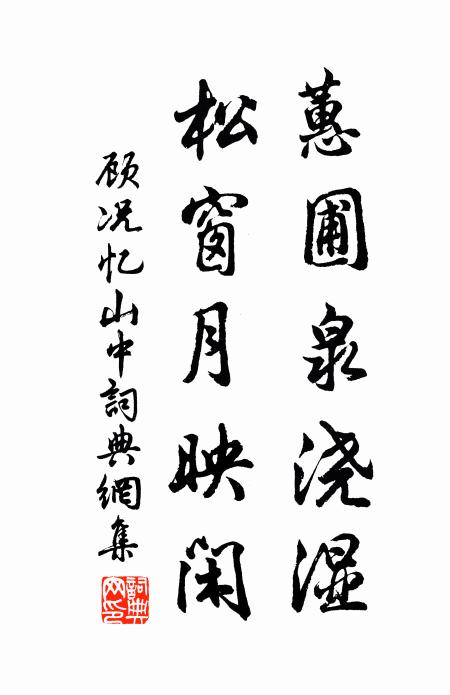 蕙圃泉浇湿
松窗月映闲
顾况忆山中詞典網集